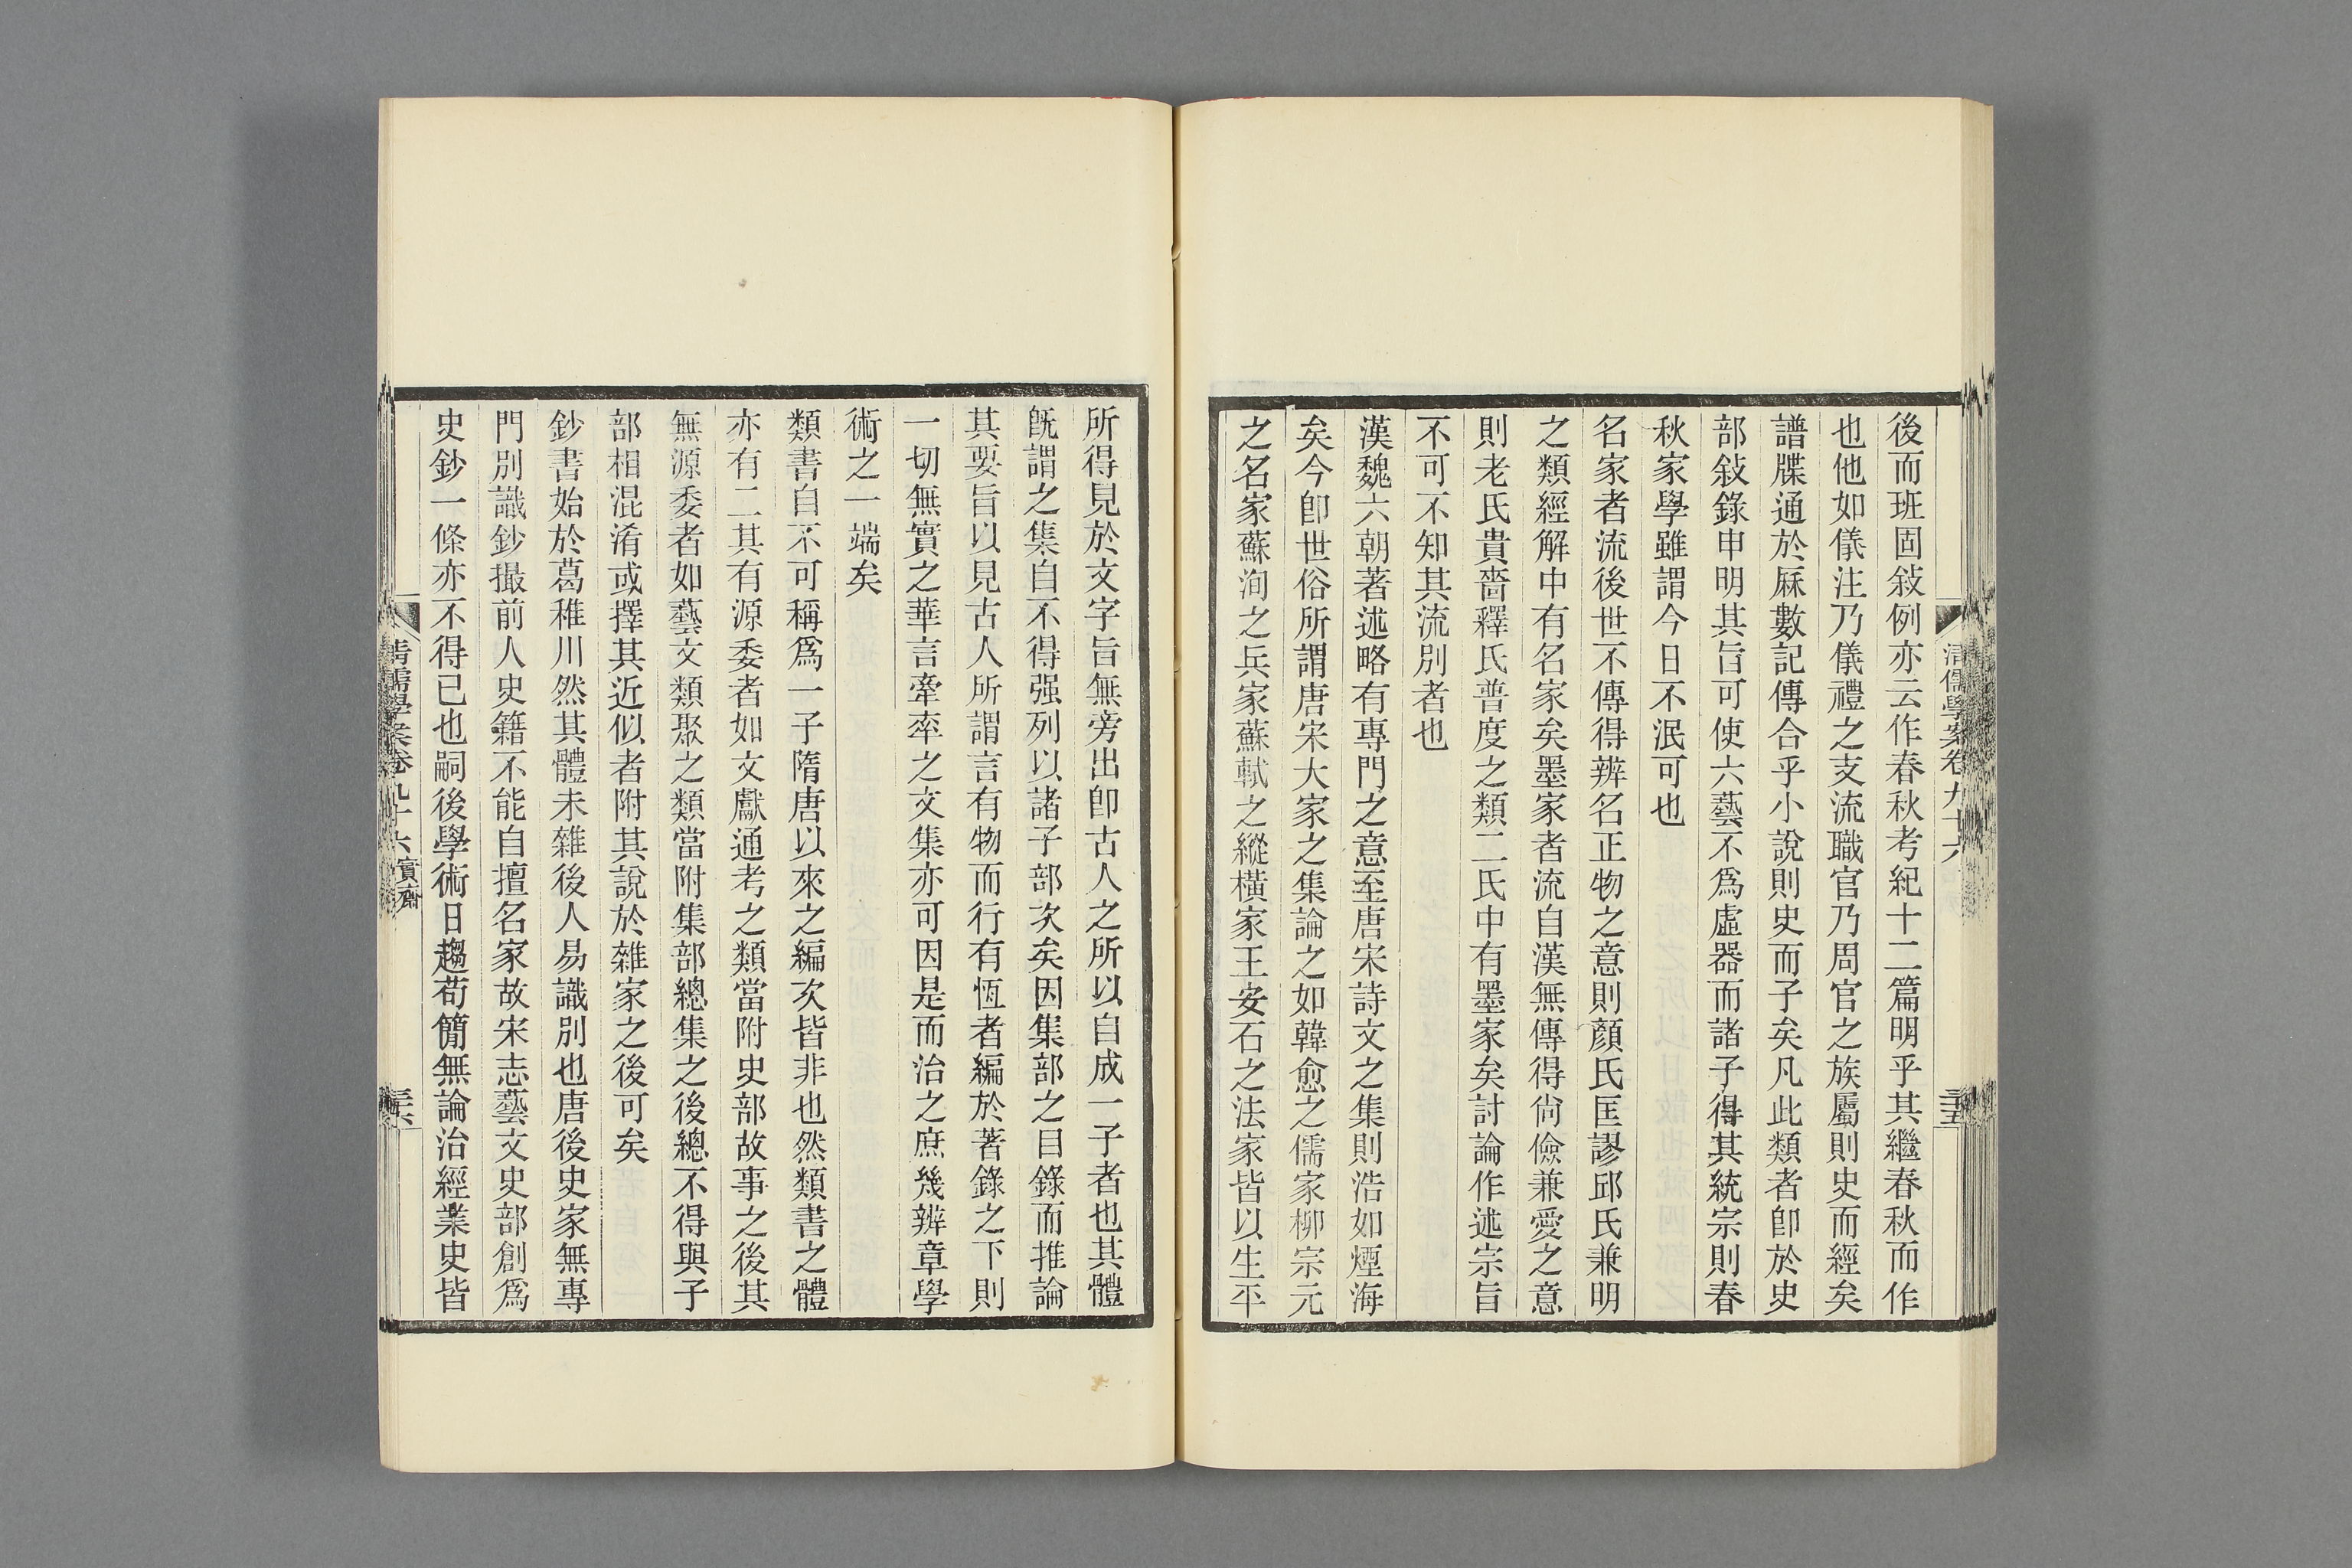 清儒學案卷九十六
三十五
後而班固敍例亦云作春秋考紀十二篇明乎其繼春秋而作
也他如儀注乃儀禮之支流職官乃周官之族屬則史而經矣
譜牒通於厤數記傳合乎小說則史而子矣凡此類者卽於史
部敍錄申明其旨可使六藝不爲虛器而諸子得其統宗則春
秋家學雖謂今日不泯可也
名家者流後世不傳得辨名正物之意則顏氏匡謬邱氏兼明
之類經解中有名家矣墨家者流自漢無傳得尙儉兼愛之意
則老氏貴嗇釋氏普度之類二氏中有墨家矣討論作述宗旨
不可不知其流別者也
漢魏六朝著述略有專門之意至唐宋詩文之集則浩如煙海
矣今卽世俗所謂唐宋大家之集論之如韓愈之儒家柳宗元
之名家蘇洵之兵家蘇軾之縱橫家王安石之法家皆以生平
所得見於文字旨無旁出卽古人之所以自成一子者也其體
旣謂之集自不得强列以諸子部次矣因集部之目錄而推論
其要旨以見古人所謂言有物而行有恆者編於著錄之下則
一切無實之華言牽率之文集亦可因是而治之庶幾辨章學
術之一端矣
類書自不可稱爲一子隋唐以來之編次皆非也然類書之體
亦有二其有源委者如文獻通考之類當附史部故事之後其
無源委者如藝文類聚之類當附集部總集之後總不得與子
部相混淆或擇其近似者附其說於雜家之後可矣
鈔書始於葛稚川然其體未雜後人易識別也唐後史家無專
門別識鈔撮前人史籍不能自擅名家故宋志藝文史部創爲
史鈔一條亦不得已也嗣後學術日趨苟簡無論治經業史皆
清儒學案卷九十六 實齋
三十六